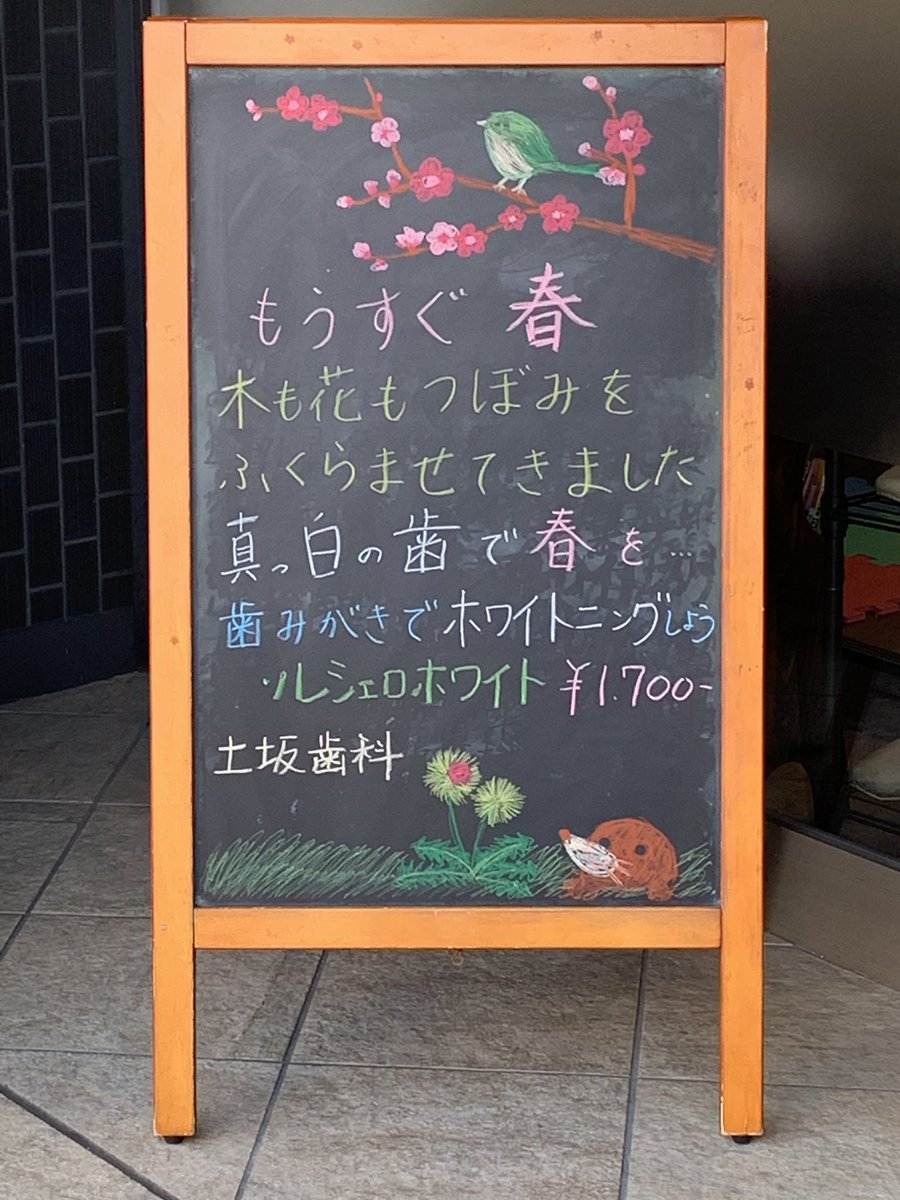 もうすぐ 春
木も花もつぼみを
ふくらませてきました
真っ白の歯で春を…
歯みがきでホワイトニングしよう
ソルシェロホワイト ¥1.700-
土坂歯科